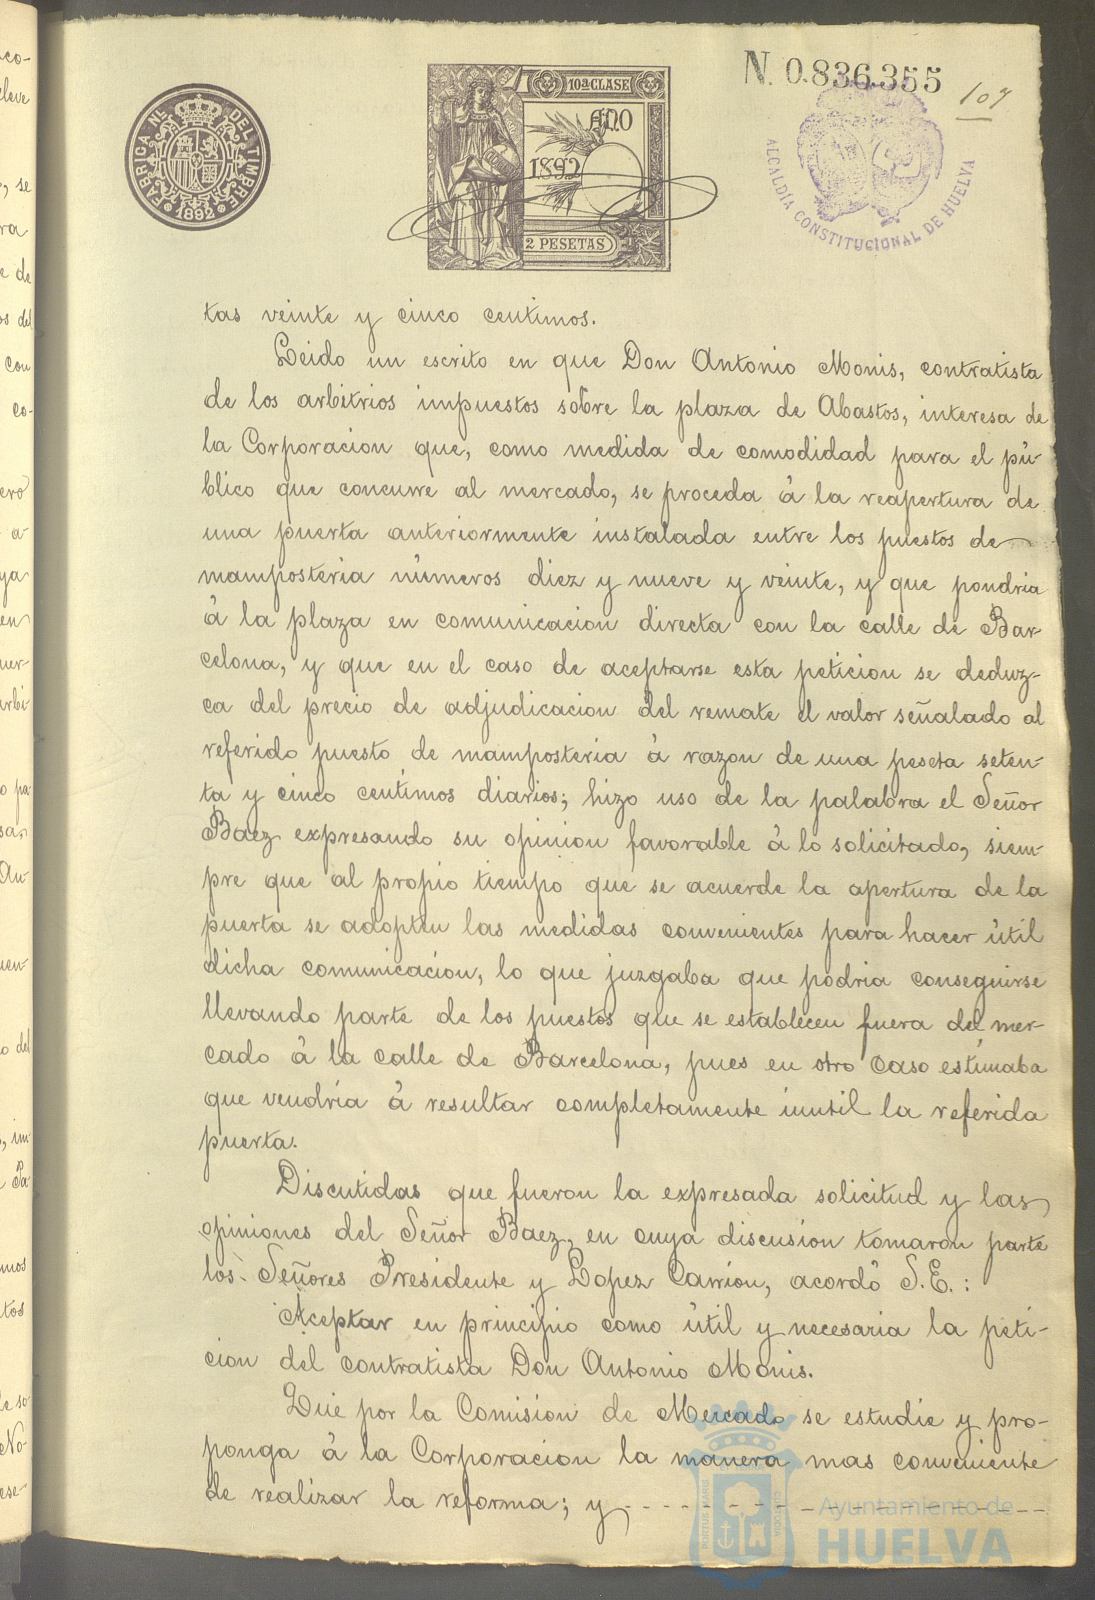 FABRICA Nᴸ DEL TIMBRE
1892
10ª CLASE
AÑO
1892
2 PESETAS
N. 0.836.355
107
ALCALDÍA CONSTITUCIONAL DE HUELVA
tas veinte y cinco centimos.
Leido un escrito en que Don Antonio Monis, contratista
de los arbitrios impuestos sobre la plaza de Abastos, interesa de
la Corporacion que, como medida de comodidad para el pú-
blico que concurre al mercado, se proceda á la reapertura de
una puerta anteriormente instalada entre los puestos de
mamposteria números diez y nueve y veinte, y que pondria
á la plaza en comunicacion directa con la calle de Bar-
celona, y que en el caso de aceptarse esta peticion se deduz-
ca del precio de adjudicacion del remate el valor señalado al
referido puesto de mamposteria á razon de una peseta seten-
ta y cinco centimos diarios; hizo uso de la palabra el Señor
Baez expresando su opinion favorable á lo solicitado, siem-
pre que al propio tiempo que se acuerde la apertura de la
puerta se adopten las medidas convenientes para hacer útil
dicha comunicacion, lo que juzgaba que podria conseguirse
llevando parte de los puestos que se establecen fuera del mer-
cado á la calle de Barcelona, pues en otro caso estimaba
que vendría á resultar completamente inutil la referida
puerta.
Discutidas que fueron la expresada solicitud y las
opiniones del Señor Baez, en cuya discusion tomaron parte
los Señores Presidente y Lopez Carrion, acordó S.E.:
Aceptar en principio como útil y necesaria la peti-
cion del contratista Don Antonio Monis.
Que por la Comisión de Mercado se estudie y pro-
ponga á la Corporacion la manera mas conveniente
de realizar la reforma; y
Ayuntamiento de
HUELVA